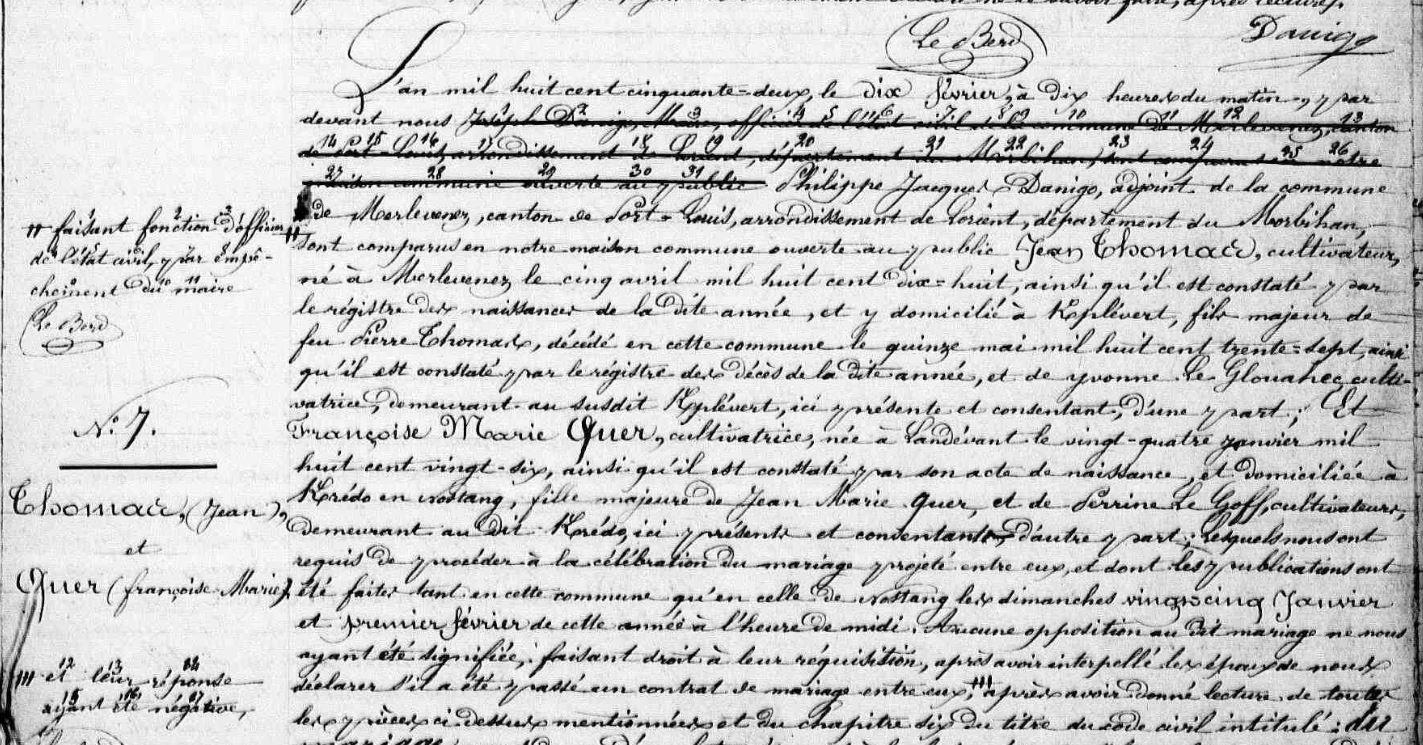 Le Berd
Danigo
L'an mil huit cent cinquante-deux, le dix février, à dix heures du matin, par
devant nous Joseph Danigo, Maire, officier de l'état civil de la commune de Merlevenez, canton
de Port-Louis, arrondissement de Lorient, département du Morbihan, sont comparus en notre
maison commune ouverte au public Philippe Jacques Danigo, adjoint de la commune
de Merlevenez, canton de Port-Louis, arrondissement de Lorient, département du Morbihan,
" faisant fonction d'officier
de l'état civil, par empê-
chement du maire
Le Berd
" sont comparus en notre maison commune ouverte au public Jean Thomas, cultivateur,
né à Merlevenez le cinq avril mil huit cent dix-huit, ainsi qu'il est constaté par
le régistre des naissances de la dite année, et y domicilié à Kplévert, fils majeur de
feu Pierre Thomas, décédé en cette commune le quinze mai mil huit cent trente-sept, ainsi
qu'il est constaté par le régistre des décès de la dite année, et de yvonne Le Glouahec, culti-
vatrice, demeurant au susdit Kplévert, ici présente et consentant, d'une part; Et
N° 7.
Françoise Marie Quer, cultivatrice, née à Landévant le vingt-quatre janvier mil
huit cent vingt-six, ainsi qu'il est constaté par son acte de naissance, et domiciliée à
Thomas, (Jean),
et
Quer (françoise Marie),
Krédo en Nostang, fille majeure de Jean Marie Quer, et de Perrine Le Goff, cultivateurs,
demeurant au dit Krédo, ici présents et consentants, d'autre part; Lesquels nous ont
requis de procéder à la célébration du mariage projeté entre eux, et dont les publications ont
été faites tant en cette commune qu'en celle de Nostang les dimanches vingt cinq Janvier
et premier février de cette année à l'heure de midi. Aucune opposition au dit mariage ne nous
ayant été signifiée, faisant droit à leur réquisition, après avoir interpellé les époux de nous
déclarer s'il a été passé un contrat de mariage entre eux, "' après avoir donné lecture de toutes
"' et leur réponse
ayant été négative,
les pièces ci dessus mentionnées et du chapitre six du titre du code civil intitulé: du
mariage